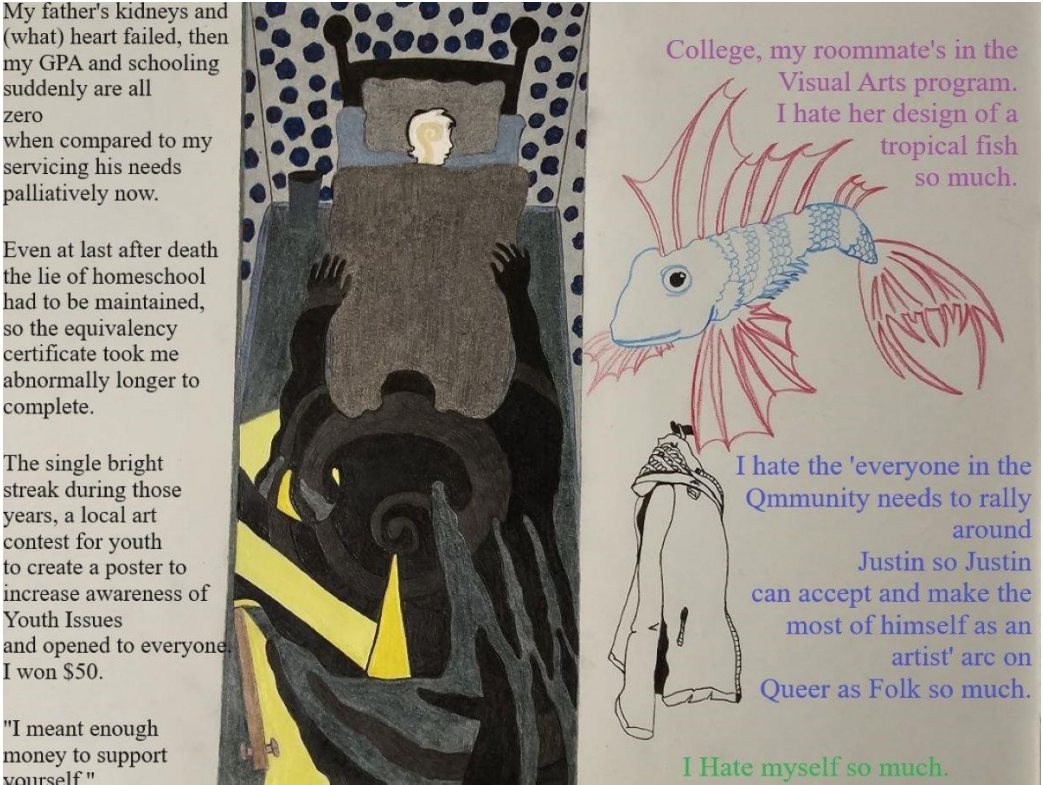 My father's kidneys and
(what) heart failed, then
my GPA and schooling
suddenly are all
zero
when compared to my
servicing his needs
palliatively now.
Even at last after death
the lie of homeschool
had to be maintained,
so the equivalency
certificate took me
abnormally longer to
complete.
The single bright
streak during those
years, a local art
contest for youth
to create a poster to
increase awareness of
Youth Issues
and opened to everyone.
I won $50.
"I meant enough
money to support
yourself."
College, my roommate's in the
Visual Arts program.
I hate her design of a
tropical fish
so much.
I hate the 'everyone in the
Qmmunity needs to rally
around
Justin so Justin
can accept and make the
most of himself as an
artist' arc on
Queer as Folk so much.
I Hate myself so much.